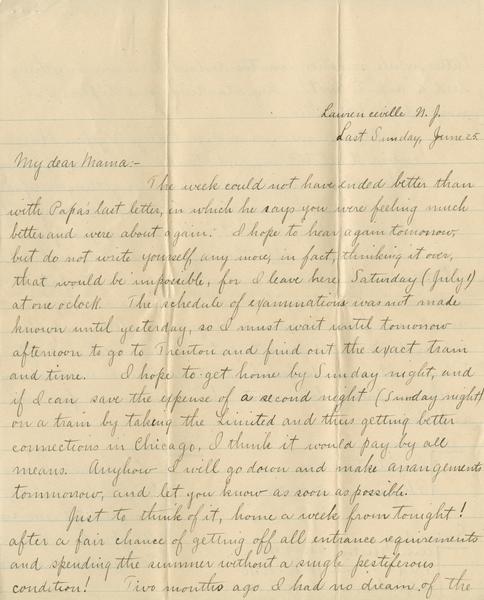 Lawrenceville N. J.
Last Sunday, June 25
My dear Mama:-
The week could not have ended better than
with Papa's last letter, in which he says you were feeling much
better and were about again. I hope to hear again tomorrow,
but do not write yourself any more, in fact, thinking it over,
that would be impossible, for I leave here Saturday (July 1)
at one oclock. The schedule of examinations was not made
known until yesterday, so I must wait until tomorrow
afternoon to go to Trenton and find out the exact train
and time. I hope to get home by Sunday night, and
if I can save the expense of a second night (Sunday night)
on a train by taking the Limited and thus getting better
connections in Chicago, I think it would pay by all
means. Anyhow I will go down and make arrangements
tommorow, and let you know as soon as possible.
Just to think of it, home a week from tonight!
after a fair chance of getting off all entrance requirements
and spending the summer without a single pestiferous
condition! Two months ago I had no dream of the